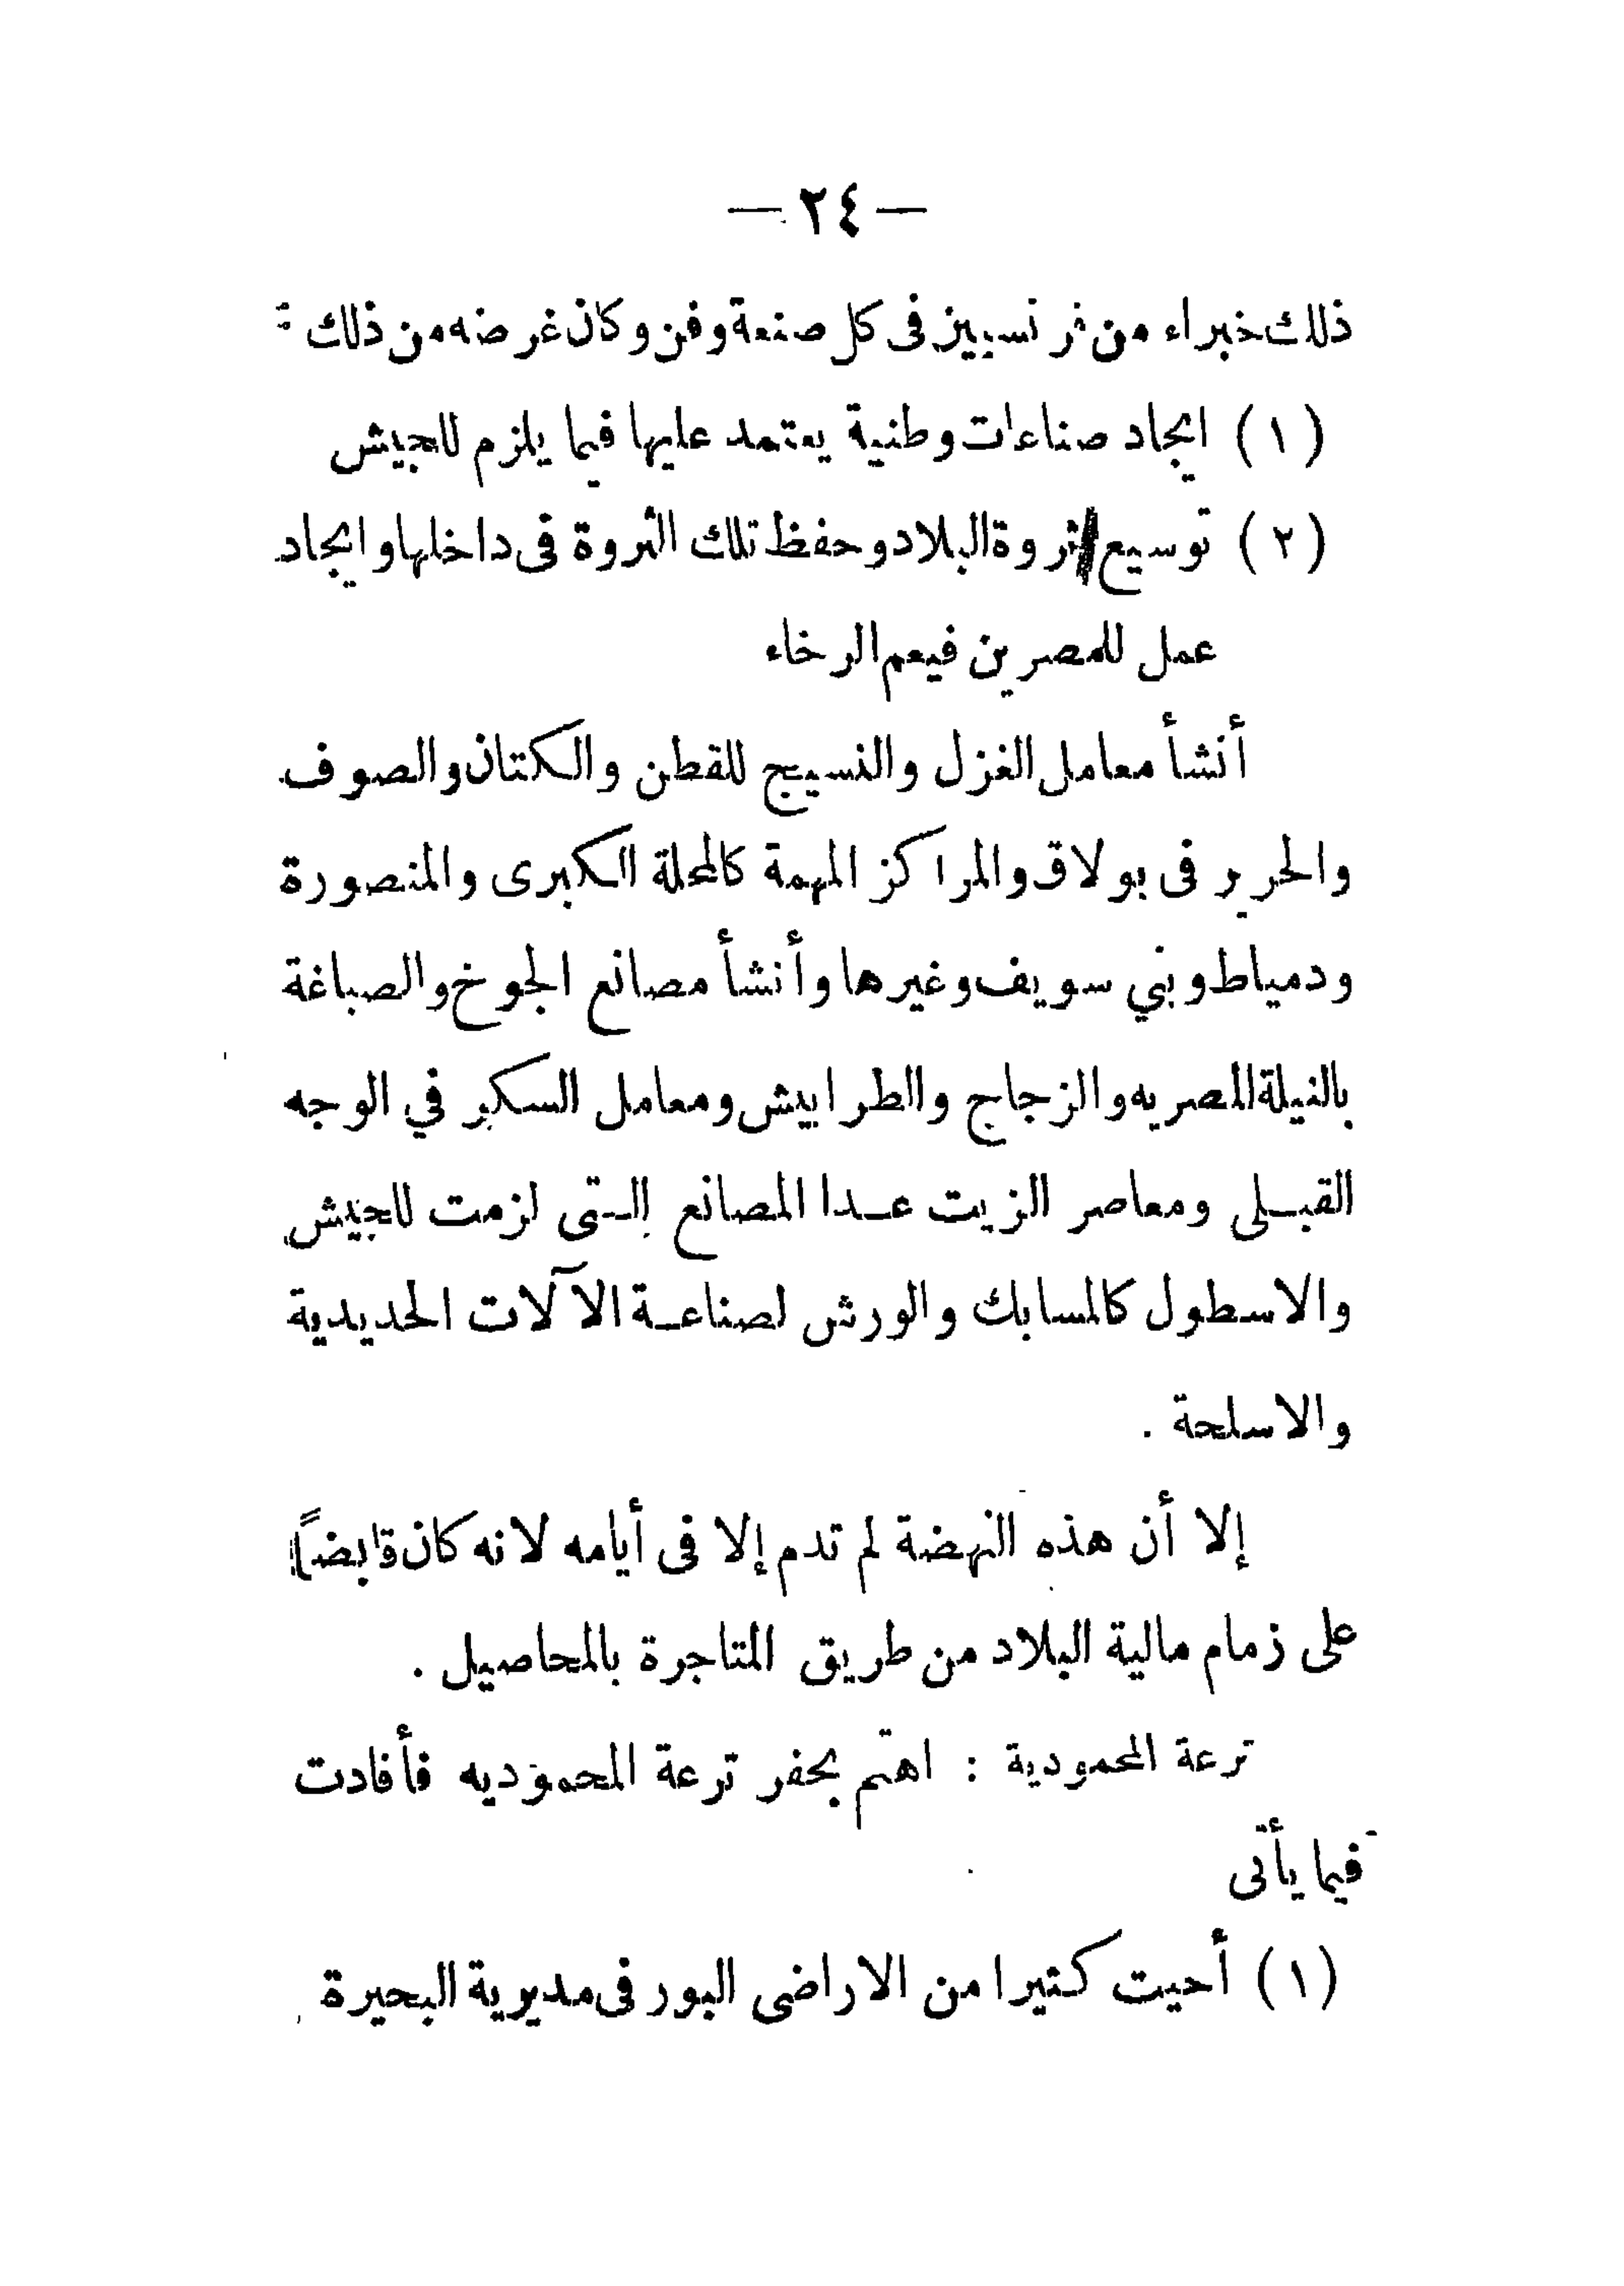 — ٢٤ —
ذلك خبراء من فرنسيين فى كل صنعة وفن وكان غرضه من ذلك :
(١) ايجاد صناعات وطنية يعتمد عليها فيما يلزم للجيش
(٢) توسيع ثروة البلاد وحفظ تلك الثروة فى داخلها وايجاد
عمل للمصرين فيعم الرخاء
أنشأ معامل الغزل والنسيج للقطن والكتان والصوف
والحرير فى بولاق والمراكز المهمة كالمحلة الكبرى والمنصورة
ودمياط وبني سويف وغيرها وأنشأ مصانع الجوخ والصباغة
بالنيلة المصريه والزجاج والطرابيش ومعامل السكر في الوجه
القبلى ومعاصر الزيت عدا المصانع التى لزمت للجيش
والاسطول كالمسابك والورش لصناعة الآلات الحديدية
والاسلحة .
إلا أن هذه النهضة لم تدم إلا فى أيامه لانه كان قابضاً
على زمام مالية البلاد من طريق المتاجرة بالمحاصيل .
ترعة المحمودية : اهتم بحفر ترعة المحموديه فأفادت
فيما يأتى
(١) أحيت كثيرا من الاراضى البور فى مديرية البحيرة